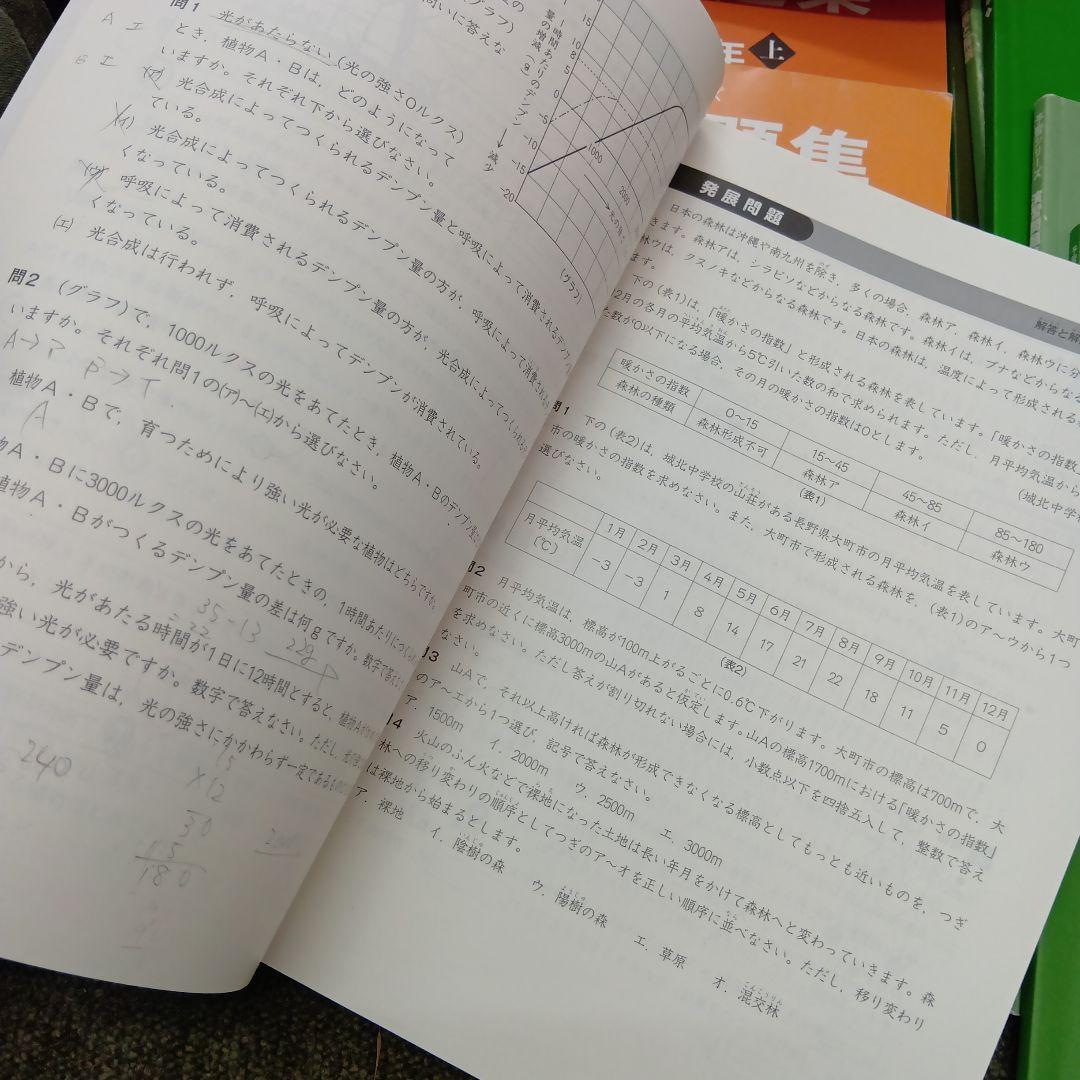 問1 光があたらない(光の強さ0ルクス)
とき，植物A・Bは，どのようになって
いますか。それぞれ下から選びなさい。
光合成によってつくられるデンプン量と呼吸によって消費されるデンプン
ている。
(イ) 光合成によってつくられるデンプン量の方が，呼吸によって消費される
くなっている。
(ウ) 呼吸によって消費されるデンプン量の方が，光合成によってつくられる
くなっている。
(エ) 光合成は行われず，呼吸によってデンプンが消費されている。
問2 (グラフ)で，1000ルクスの光をあてたとき，植物A・Bのデンプン量
いますか。それぞれ問1の(ア)〜(エ)から選びなさい。
植物A・Bで，育つためにより強い光が必要な植物はどちらですか。
物A・Bに3000ルクスの光をあてたときの，1時間あたりに
植物A・Bがつくるデンプン量の差は何gですか。数字で答え
から，光があたる時間が1日に12時間とすると，植物
強い光が必要ですか。数字で答えなさい。ただし，
デンプン量は，光の強さにかかわらず一定であるもの
A エ
B エ
A
35-13
=22
22g
240
15
×12
30
15
180
1時間あたりのデンプン
量の増減(g)
減少
15
10
8
5
0
-5
-10
-15
-20
1000
2000
(グラフ)
年 上
題集
発展問題
解答と解
日本の森林は沖縄や南九州を除き，多くの場合，森林ア，森林イ，森林ウに分
きます。森林アは，シラビソなどからなる森林です。森林イは，ブナなどからなる
林ウは，クスノキなどからなる森林です。日本の森林は，温度によって形成される
ます。
下の(表1)は，「暖かさの指数」と形成される森林を表しています。「暖かさの指数
12月の各月の平均気温から5℃引いた数の和で求められます。ただし，月平均気温から
た数が0以下になる場合，その月の暖かさの指数は0とします。
(城北中学校
暖かさの指数 0〜15 15〜45 45〜85 85〜180
森林の種類 森林形成不可 森林ア 森林イ 森林ウ
(表1)
問1 下の(表2)は，城北中学校の山荘がある長野県大町市の月平均気温を表しています。大町
市の暖かさの指数を求めなさい。また，大町市で形成される森林を，(表1)のア〜ウから1つ
選びなさい。
1月 2月 3月 4月 5月 6月 7月 8月 9月 10月 11月 12月
月平均気温(℃) −3 −3 1 8 14 17 21 22 18 11 5 0
(表2)
問2 月平均気温は，標高が100m上がるごとに0.6℃下がります。大町市の標高は700mで，大
町市の近くに標高3000mの山Aがあると仮定します。山Aの標高1700mにおける「暖かさの指数」
を求めなさい。ただし答えが割り切れない場合には，小数点以下を四捨五入して，整数で答え
なさい。
問3 山Aで，それ以上高ければ森林が形成できなくなる標高としてもっとも近いものを，つぎ
のア〜エから1つ選び，記号で答えなさい。
ア．1500m イ．2000m ウ．2500m エ．3000m
問4 火山のふん火などで裸地になった土地は長い年月をかけて森林へと変わっていきます。森
林への移り変わりの順序としてつぎのア〜オを正しい順序に並べなさい。ただし，移り変わり
は裸地から始まるとします。
ア．裸地 イ．陰樹の森 ウ．陽樹の森 エ．草原 オ．混交林